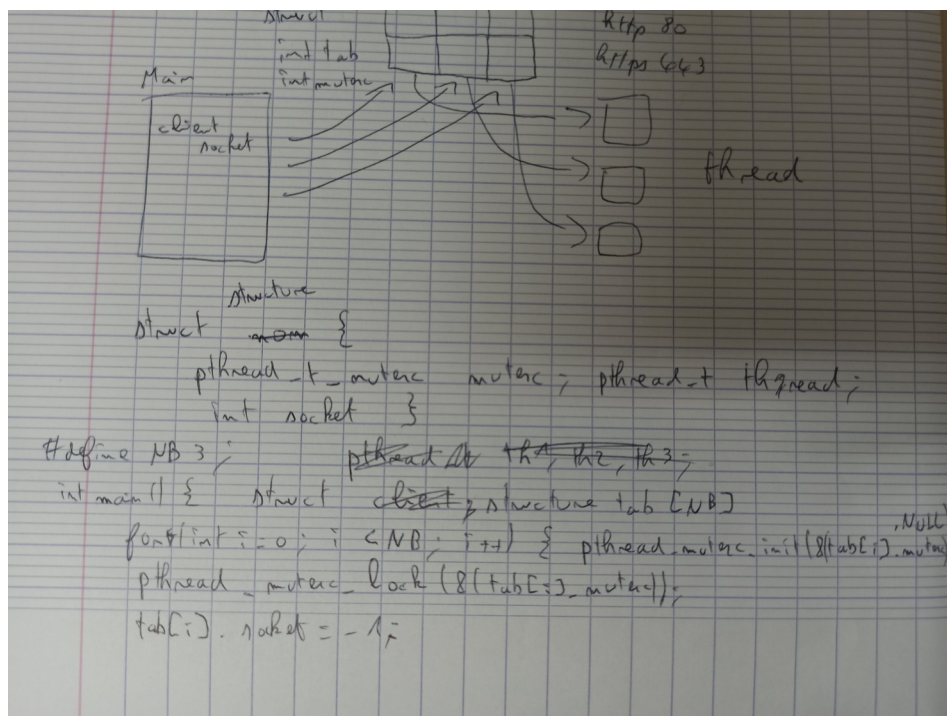 struct
http 80
int tab
https 443
Main
int mutex
client
socket
thread
structure
struct nom {
pthread_t_mutex mutex; pthread_t thread;
int socket }
#define NB 3; pthread th1, th2, th3;
int main() { struct client structure tab [NB]
for(int i=0; i<NB; i++) { pthread_mutex_init(&(tab[i].mutex) ,NULL)
pthread_mutex_lock (&(tab[i]_mutex));
tab[i].socket = -1;